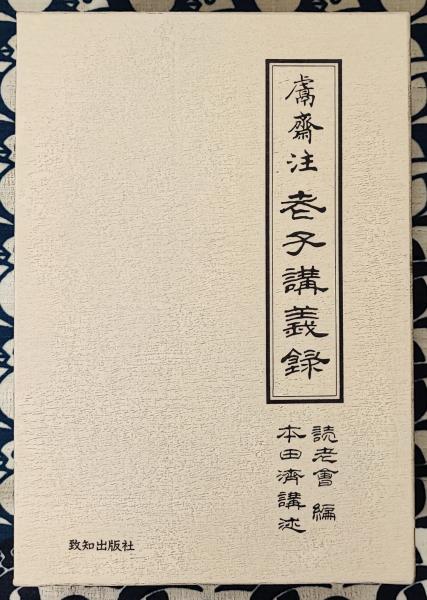 鬳齋注 老子講義録
読老會 編
本田濟講述
致知出版社